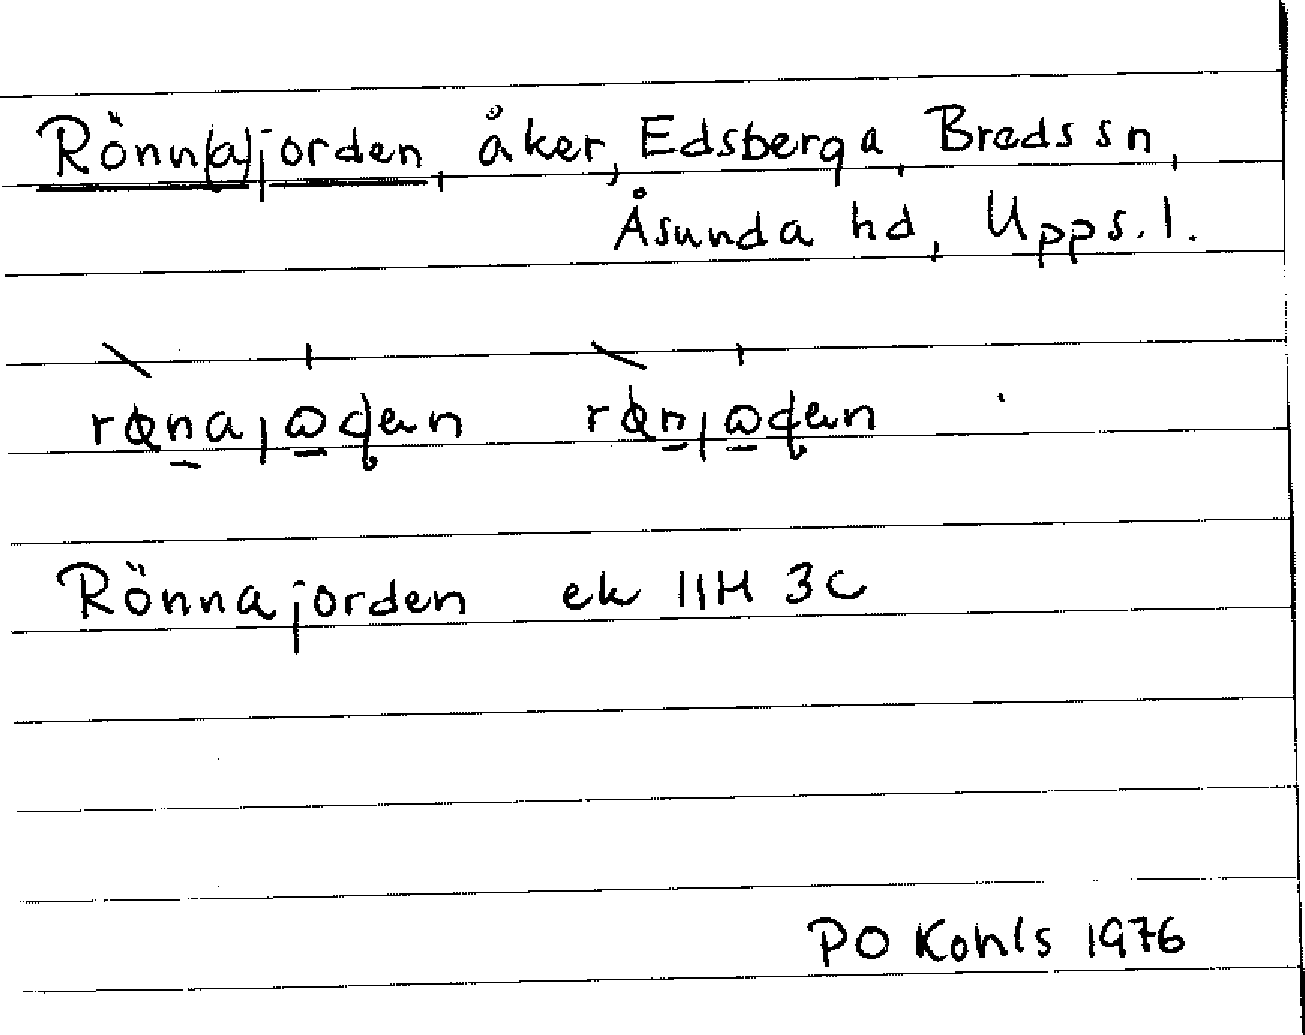 Rönn(a)jorden, åker, Edsberga, Breds sn,
Åsunda hd, Upps. l.
Rönnajorden ek 11H 3c
PO Kohls 1976